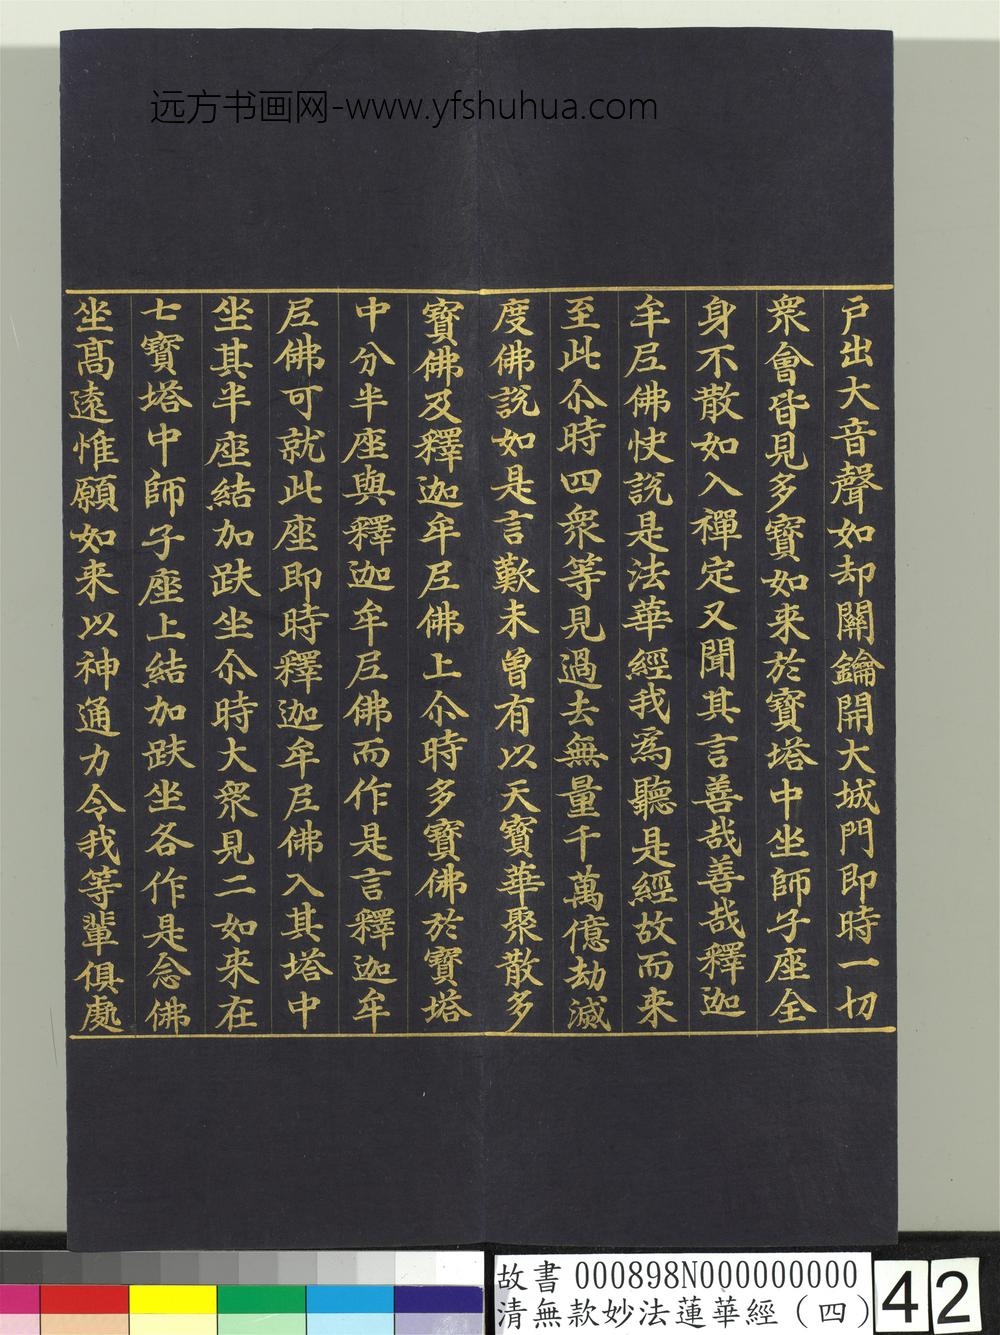 远方书画网-www.yfshuhua.com
戶出大音聲如却關鑰開大城門即時一切
眾會皆見多寶如来於寶塔中坐師子座全
身不散如入禪定又聞其言善哉善哉釋迦
牟尼佛快說是法華經我為聽是經故而来
至此尒時四眾等見過去無量千萬億劫滅
度佛說如是言歎未曾有以天寶華聚散多
寶佛及釋迦牟尼佛上尒時多寶佛於寶塔
中分半座與釋迦牟尼佛而作是言釋迦牟
尼佛可就此座即時釋迦牟尼佛入其塔中
坐其半座結加趺坐尒時大眾見二如来在
七寶塔中師子座上結加趺坐各作是念佛
坐高遠惟願如来以神通力令我等輩俱處
故書 000898N000000000
清無款妙法蓮華經（四）
42